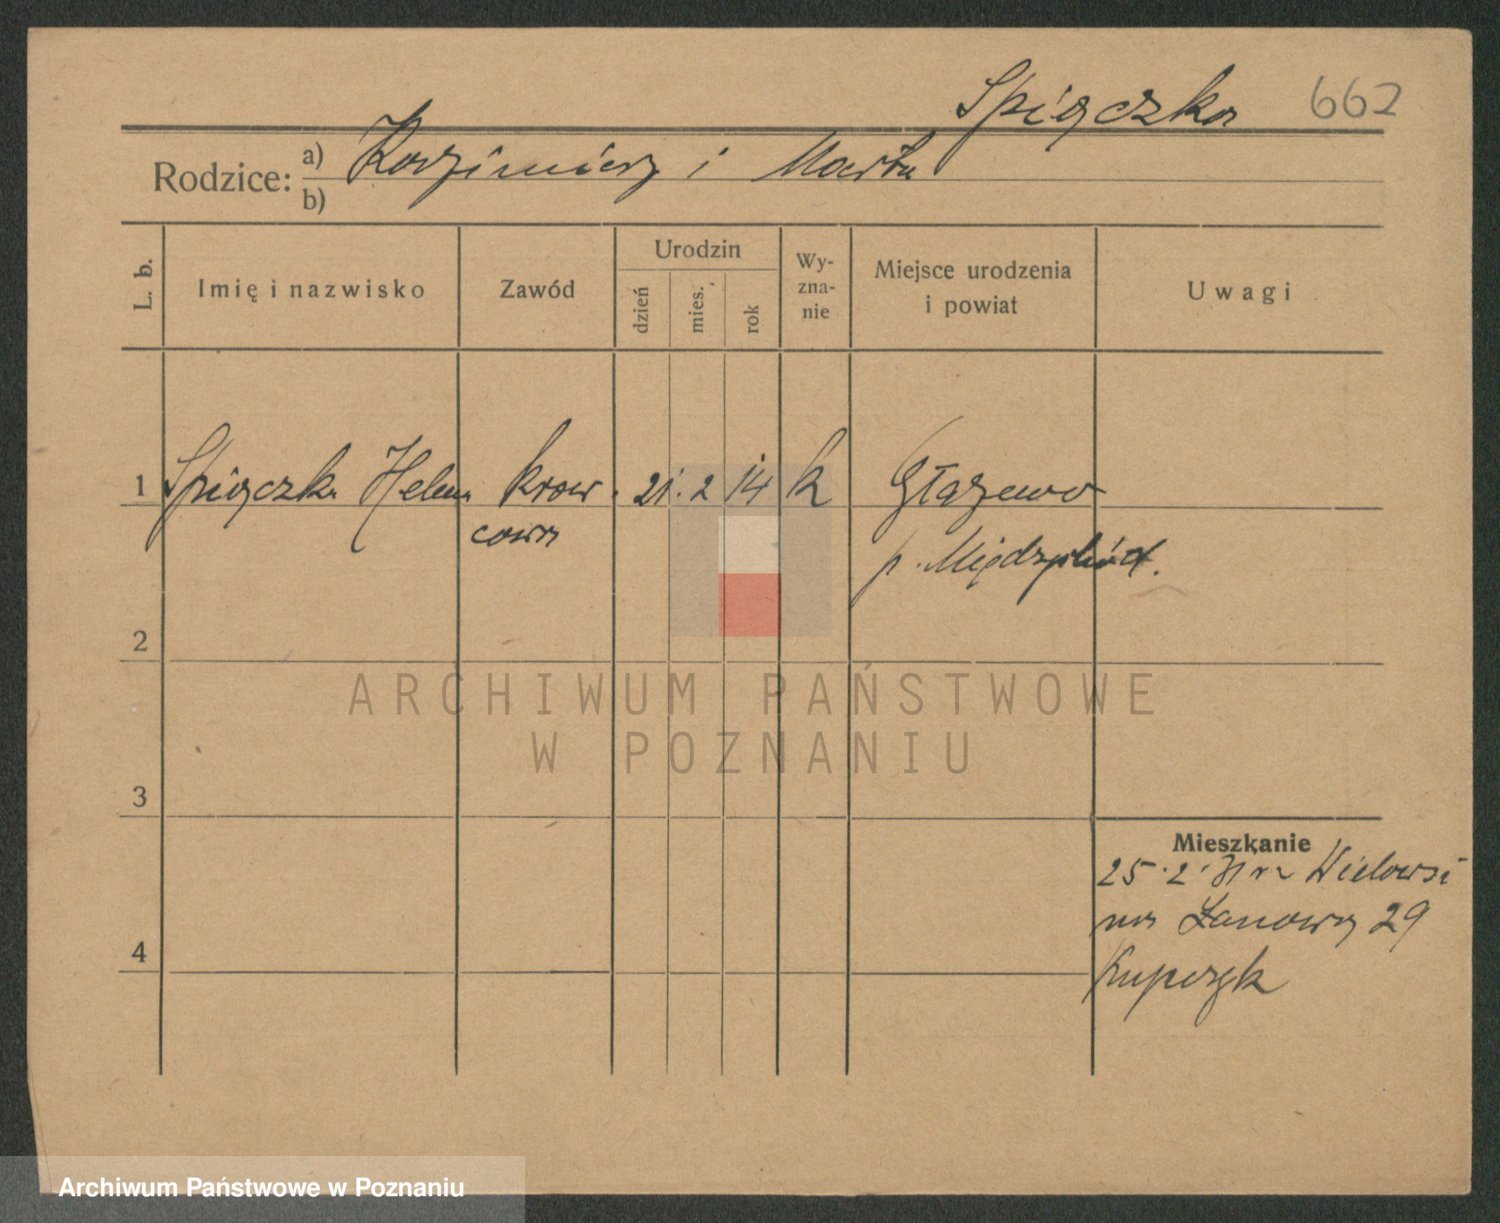 Spiączka 662
Rodzice: a) Kazimierz i Marta
b)
L. b. Imię i nazwisko Zawód Urodzin dzień mies. rok Wy-zna-nie Miejsce urodzenia i powiat Uwagi
1 Spiączka Helena kraw 21. 2 14 k Głażewo
cowa p. Międzychód.
2
ARCHIWUM PAŃSTWOWE
W POZNANIU
3
Mieszkanie
25.2. z
na 29
4
Kupczyk
Archiwum Państwowe w Poznaniu